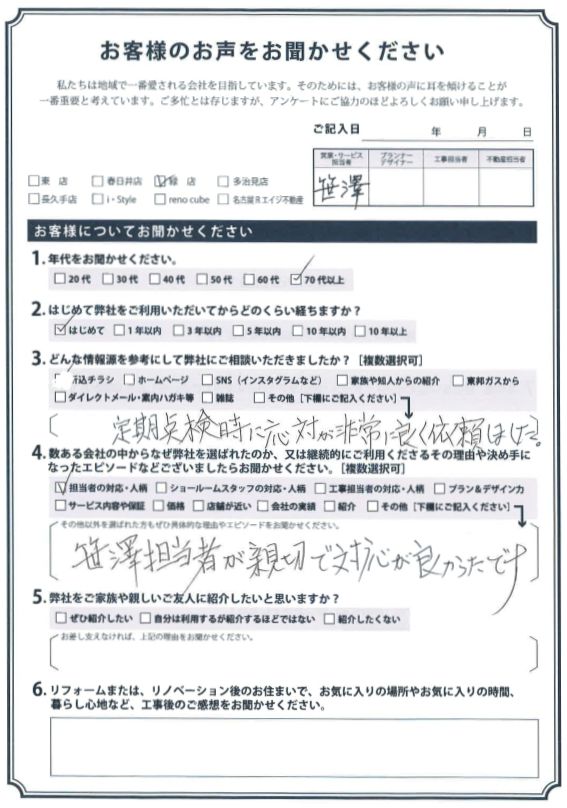 お客様のお声をお聞かせください
私たちは地域で一番愛される会社を目指しています。そのためには、お客様の声に耳を傾けることが
一番重要と考えています。ご多忙とは存じますが、アンケートにご協力のほどよろしくお願い申し上げます。
ご記入日 年 月 日
営業・サービス担当者 プランナーデザイナー 工事担当者 不動産担当者
笹澤
□東 店 □春日井店 ☑緑 店 □多治見店
□長久手店 □i・Style □reno cube □名古屋Rエイジ不動産
お客様についてお聞かせください
1. 年代をお聞かせください。
□20代 □30代 □40代 □50代 □60代 ☑70代以上
2. はじめて弊社をご利用いただいてからどのくらい経ちますか？
☑はじめて □1年以内 □3年以内 □5年以内 □10年以内 □10年以上
3. どんな情報源を参考にして弊社にご相談いただきましたか？［複数選択可］
折込チラシ □ホームページ □SNS（インスタグラムなど） □家族や知人からの紹介 □東邦ガスから
□ダイレクトメール・案内ハガキ等 □雑誌 □その他［下欄にご記入ください］
定期点検時に応対が非常に良く依頼しました。
4. 数ある会社の中からなぜ弊社を選ばれたのか、又は継続的にご利用くださるその理由や決め手に
なったエピソードなどございましたらお聞かせください。［複数選択可］
☑担当者の対応・人柄 □ショールームスタッフの対応・人柄 □工事担当者の対応・人柄 □プラン＆デザイン力
□サービス内容や保証 □価格 □店舗が近い □会社の実績 □紹介 □その他［下欄にご記入ください］
その他以外を選ばれた方もぜひ具体的な理由やエピソードをお聞かせください。
笹澤担当者が親切で対応が良かったです
5. 弊社をご家族や親しいご友人に紹介したいと思いますか？
□ぜひ紹介したい □自分は利用するが紹介するほどではない □紹介したくない
お差し支えなければ、上記の理由をお聞かせください。
6. リフォームまたは、リノベーション後のお住まいで、お気に入りの場所やお気に入りの時間、
暮らし心地など、工事後のご感想をお聞かせください。